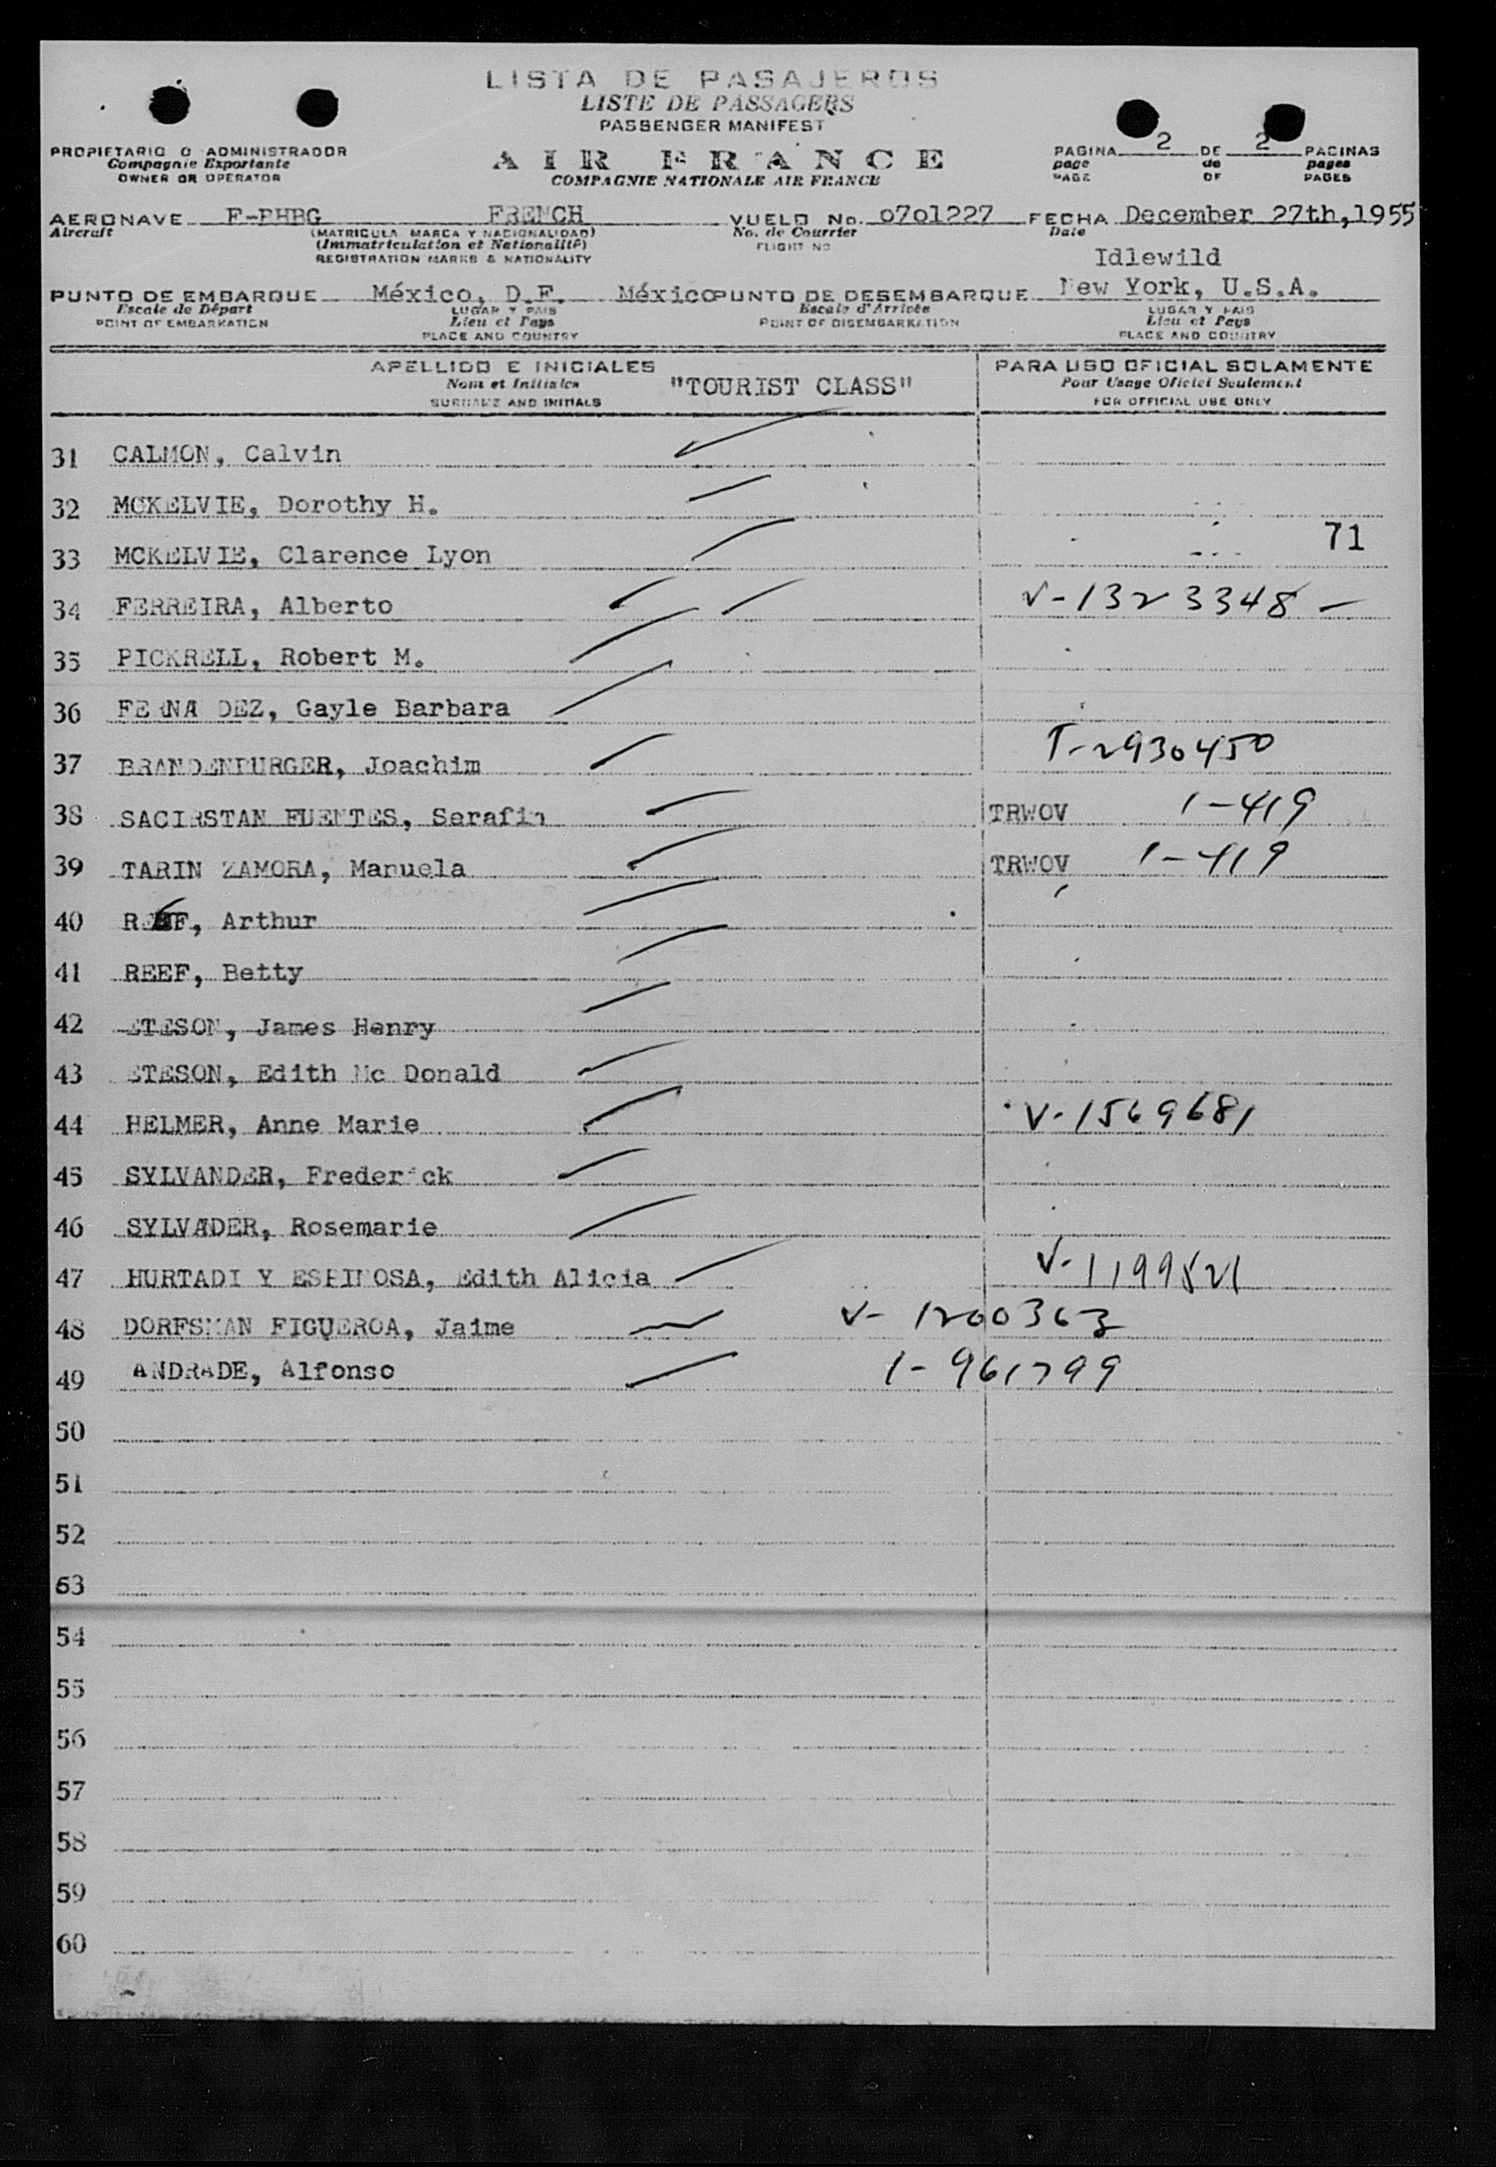 LISTA DE PASAJEROS
LISTE DE PASSAGERS
PASSENGER MANIFEST
PROPIETARIO O ADMINISTRADOR
Compagnie Exportante
OWNER OR OPERATOR
AIR FRANCE
COMPAGNIE NATIONALE AIR FRANCE
PAGINA 2 DE 2 PAGINAS
page de pages
PAGE OF PAGES
AERONAVE F-BHBG FRENCH VUELO No. 0701227 FECHA December 27th, 1955
Aircraft (MATRICULA MARCA Y NACIONALIDAD) No. de Courrier Date
(Immatriculation et Nationalité) FLIGHT NO
REGISTRATION MARKS & NATIONALITY
Idlewild
PUNTO DE EMBARQUE México, D.F. México PUNTO DE DESEMBARQUE New York, U.S.A.
Escale de Départ LUGAR Y PAIS Escale d'Arrivée LUGAR Y PAIS
POINT OF EMBARKATION Lieu et Pays POINT OF DISEMBARKATION Lieu et Pays
PLACE AND COUNTRY PLACE AND COUNTRY
APELLIDO E INICIALES PARA USO OFICIAL SOLAMENTE
Nom et Initiales "TOURIST CLASS" Pour Usage Oficiel Seulement
SURNAME AND INITIALS FOR OFFICIAL USE ONLY
31 CALMON, Calvin
32 MCKELVIE, Dorothy H.
71
33 MCKELVIE, Clarence Lyon
34 FERREIRA, Alberto V-1323348 -
35 PICKRELL, Robert M.
36 FERNA DEZ, Gayle Barbara
37 BRANDENBURGER, Joachim T-2930450
38 SACIRSTAN FUENTES, Serafin TRWOV 1-419
39 TARIN ZAMORA, Manuela TRWOV 1-419
40 REEF, Arthur
41 REEF, Betty
42 ETESON, James Henry
43 ETESON, Edith Mc Donald
44 HELMER, Anne Marie V-1569681
45 SYLVANDER, Frederick
46 SYLVADER, Rosemarie
47 HURTADI Y ESPINOSA, Edith Alicia V-1199521
48 DORFSMAN FIGUEROA, Jaime V-1200363
49 ANDRADE, Alfonso 1-961799
50
51
52
53
54
55
56
57
58
59
60